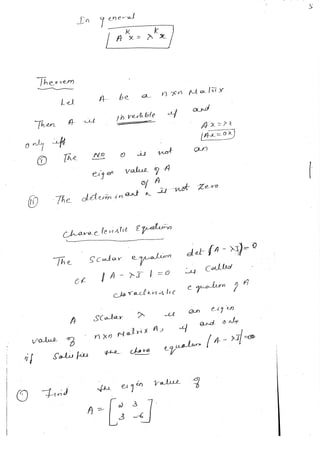 In general
A^k x = λ^k x
Theorem
Let A be a n×n Matrix
Then A is invertible if and
only iff
Ax = λx
Ax = 0x
① The NO 0 is not an
eigen value of A
② The determinant of A is not zero
Characteristic Equation
The Scalar equation det (A - λI) = 0
or |A - λI| = 0 is called
characteristic equation of A
A Scalar λ is an eigen
value of n×n Matrix A, if and only
if Satisfies the chara equation |A - λI| = 0
Find the eigen value of
A = [ 2 3
3 -6 ]